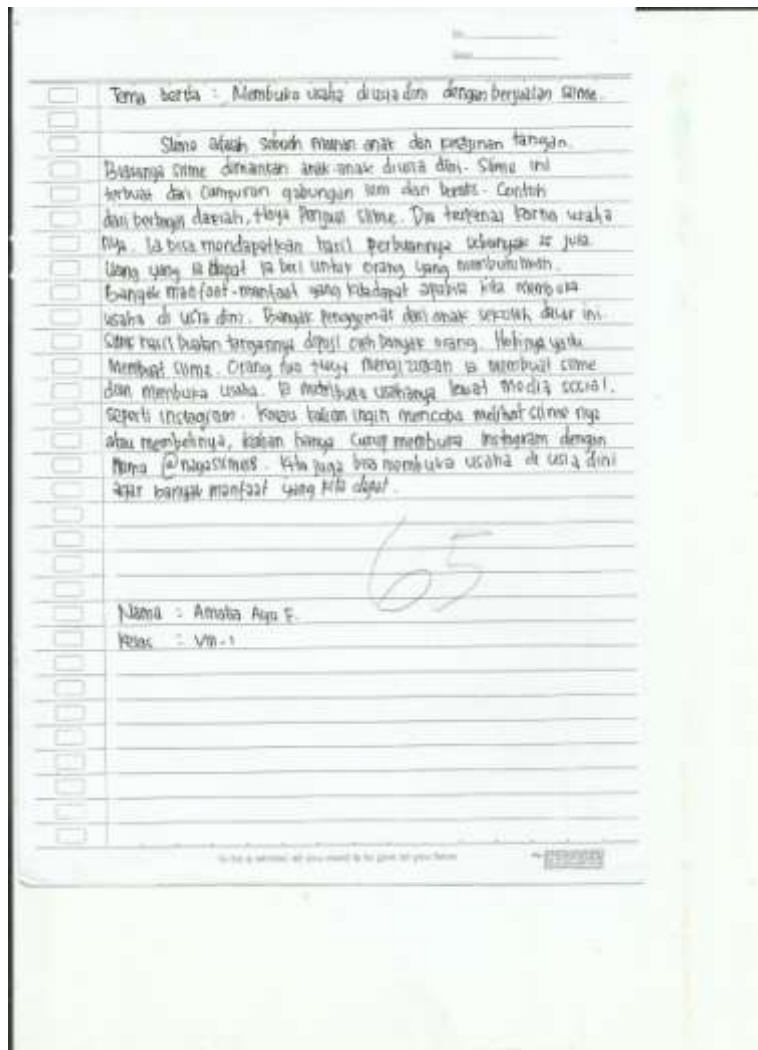 Tema berita : Membuka usaha diusia dini dengan berjualan slime.
Slime adalah sebuah mainan anak dan kerajinan tangan.
Biasanya slime dimainkan anak-anak diusia dini. Slime ini
terbuat dari campuran gabungan lem dan boraks. Contoh
dari berbagai daerah, Naya Penjual slime. Dia terkenal karna usaha
nya. Ia bisa mendapatkan hasil perbuatannya sebanyak 25 juta.
Uang yang ia dapat ia beri untuk orang yang membutuhkan.
Banyak manfaat-manfaat yang kitadapat apabila kita membuka
usaha di usia dini. Banyak penggemar dari anak sekolah dasar ini.
Slime hasil buatan tangannya dibeli oleh banyak orang. Hobinya yaitu
Membuat slime. Orang tua Naya mengizinkan ia membuat slime
dan membuka usaha. Ia membuka usahanya lewat media social.
seperti instagram. Kalau kalian ingin mencoba melihat slime nya
atau membelinya, kalian hanya cukup membuka Instagram dengan
Nama Kita juga bisa membuka usaha di usia dini
agar banyak manfaat yang kita dapat.
65
Nama : Ayu F.
Kelas : VIII-1